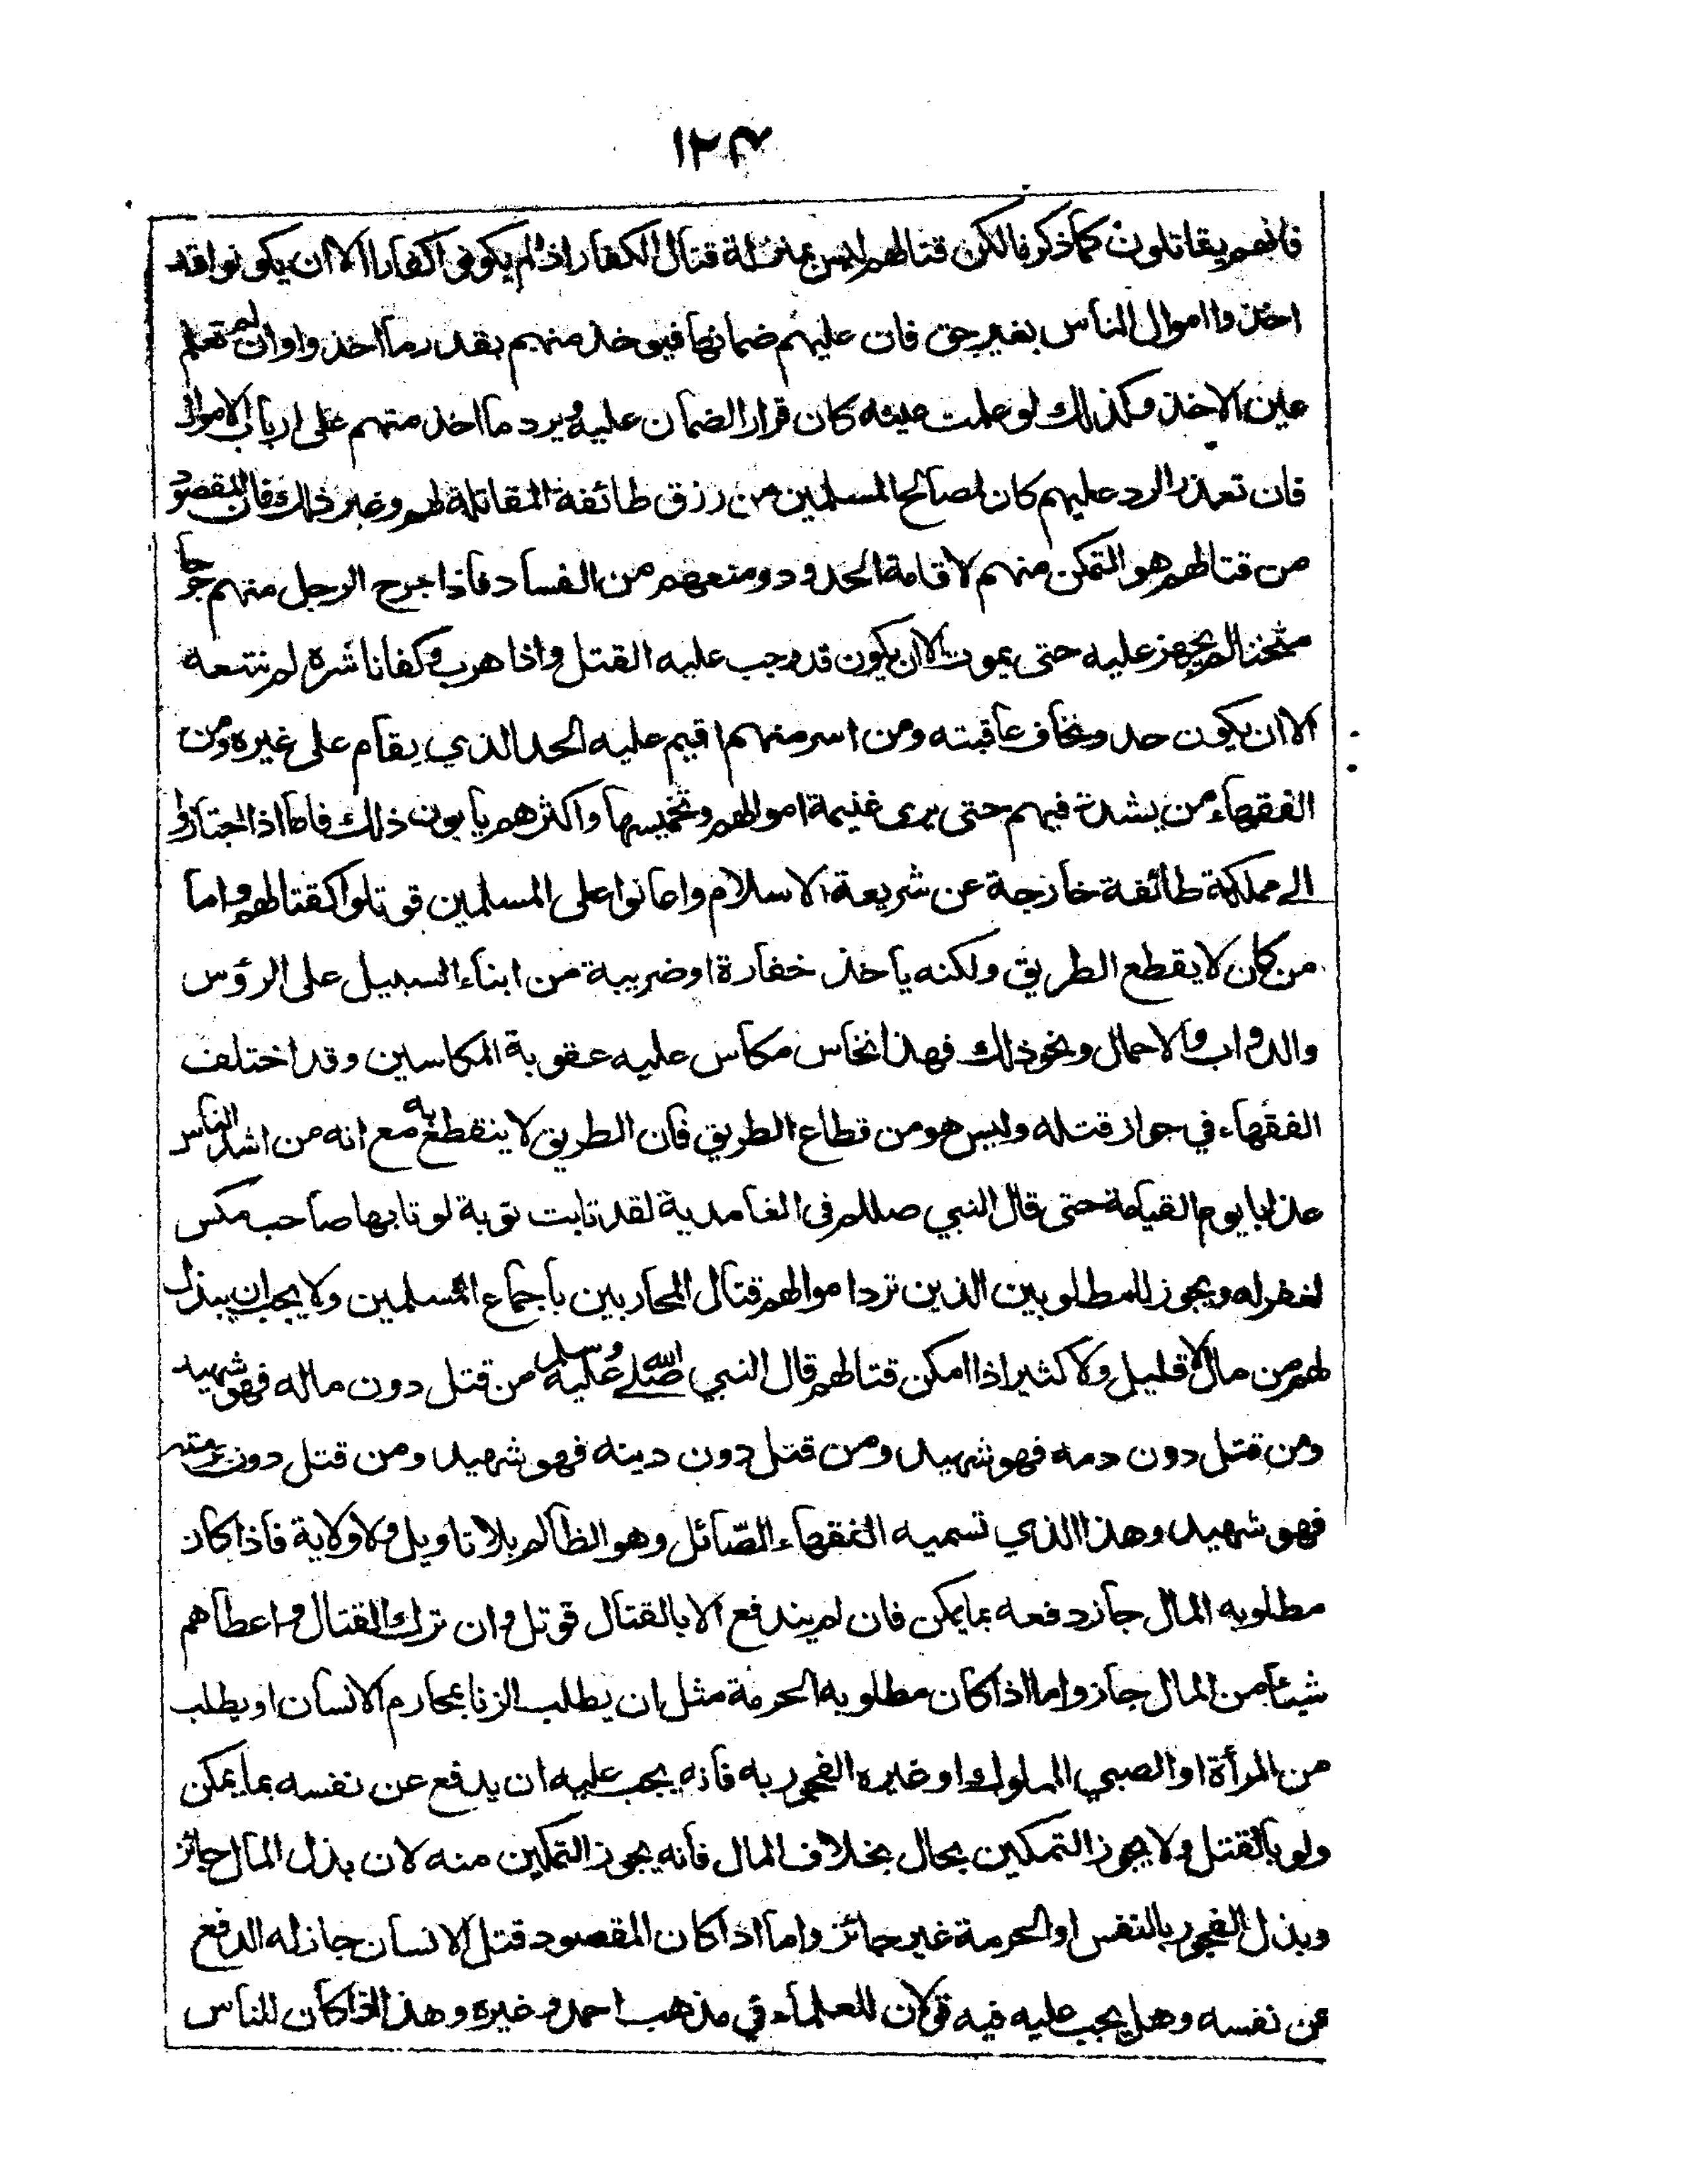 ١٢٣
فانهم يقاتلون كما ذكرنا لكن قتالهم ليس بمنزلة قتال الكفار اذا لم يكونوا كفارا الا ان يكونوا قد
اخذوا اموال الناس بغير حق فان عليهم ضمانها فيوخذ منهم بقدر ما اخذوا وان لم تعلم
عين الاخذ وكذلك لو علمت عينه كان قرار الضمان عليه ويرد ما اخذ منهم على ارباب الاموال
فان تعذر الرد عليهم كان لمصالح المسلمين من رزق طائفة المقاتلة لهم وغير ذلك فان المقصود
من قتالهم هو التمكن منهم لاقامة الحدود ومنعهم من الفساد فاذا جرح الرجل منهم جرحا
مثخنا لم يجهز عليه حتى يموت الا ان يكون قد وجب عليه القتل واذا هرب وكفانا شره لم نتبعه
الا ان يكون حد ونخاف عاقبته ومن اسر منهم اقيم عليه الحد الذي يقام على غيره ومن
الفقهاء من يشدد فيهم حتى يرى غنيمة اموالهم وتخميسها واكثرهم يابون ذلك فاما اذا اجتازوا
الى مملكة طائفة خارجة عن شريعة الاسلام واعانوا على المسلمين قوتلوا كقتالهم واما
من كان لا يقطع الطريق ولكنه ياخذ خفارة او ضريبة من ابناء السبيل على الرؤس
والدواب والاحمال ونحو ذلك فهذا نخاس مكاس عليه عقوبة المكاسين وقد اختلف
الفقهاء في جواز قتله وليس هو من قطاع الطريق فان الطريق لا ينقطع به مع انه من اشد الناس
عذابا يوم القيامة حتى قال النبي صللم في الغامدية لقد تابت توبة لو تابها صاحب مكس
لغفر له ويجوز للمطلوبين الذين تراد اموالهم قتال المحاربين باجماع المسلمين ولا يجب ان يبذل
لهم من مال لا قليل ولا كثير اذا امكن قتالهم قال النبي صلى الله عليه وسلم من قتل دون ماله فهو شهيد
ومن قتل دون دمه فهو شهيد ومن قتل دون دينه فهو شهيد ومن قتل دون حرمته
فهو شهيد وهذا الذي تسميه الفقهاء الصّائل وهو الظالم بلا تاويل ولا ولاية فاذا كان
مطلوبه المال جاز دفعه بما يمكن فان لم يندفع الا بالقتال قوتل وان ترك القتال واعطاهم
شيئا من المال جاز واما اذا كان مطلوبه الحرمة مثل ان يطلب الزنا بمحارم الانسان او يطلب
من المرأة او الصبي المملوك او غيره الفجور به فانه يجب عليه ان يدفع عن نفسه بما يمكن
ولو بالقتل ولا يجوز التمكين بحال بخلاف المال فانه يجوز التمكين منه لان بذل المال جائز
وبذل الفجور بالنفس او الحرمة غير جائز واما اذا كان المقصود قتل الانسان جاز له الدفع
عن نفسه وهل يجب عليه فيه قولان للعلماء في مذهب احمد وغيره وهذا اذا كان للناس